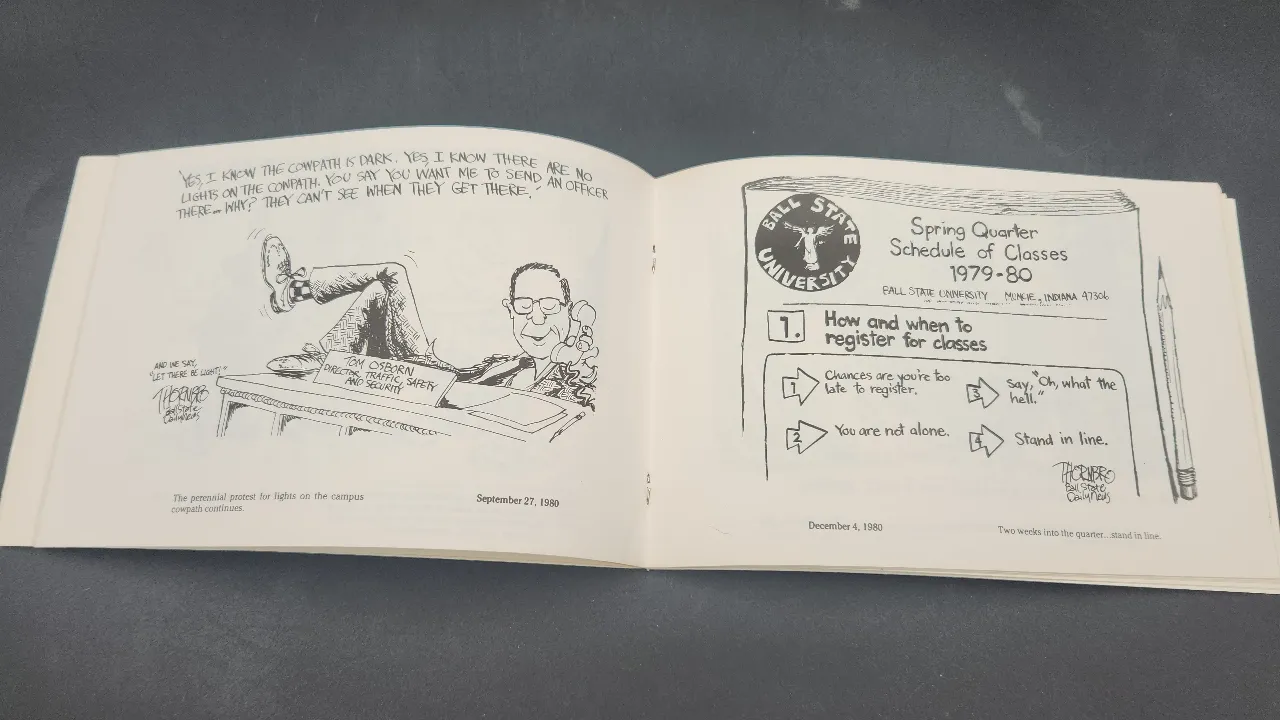 YES, I KNOW THE COWPATH IS DARK. YES, I KNOW THERE ARE NO
LIGHTS ON THE COWPATH. YOU SAY YOU WANT ME TO SEND AN OFFICER
THERE... WHY? THEY CAN'T SEE WHEN THEY GET THERE.
AND WE SAY,
"LET THERE BE LIGHT!"
THORNBRO
Ball State
Daily News
TOM OSBORN
DIRECTOR, TRAFFIC, SAFETY
AND SECURITY
The perennial protest for lights on the campus
cowpath continues.
September 27, 1980
BALL STATE
UNIVERSITY
Spring Quarter
Schedule of Classes
1979-80
BALL STATE UNIVERSITY MUNCIE, INDIANA 47306
1. How and when to
register for classes
1 Chances are you're too
late to register.
2 You are not alone.
3 Say, "Oh, what the
hell."
4 Stand in line.
THORNBRO
Ball State
Daily News
December 4, 1980
Two weeks into the quarter...stand in line.